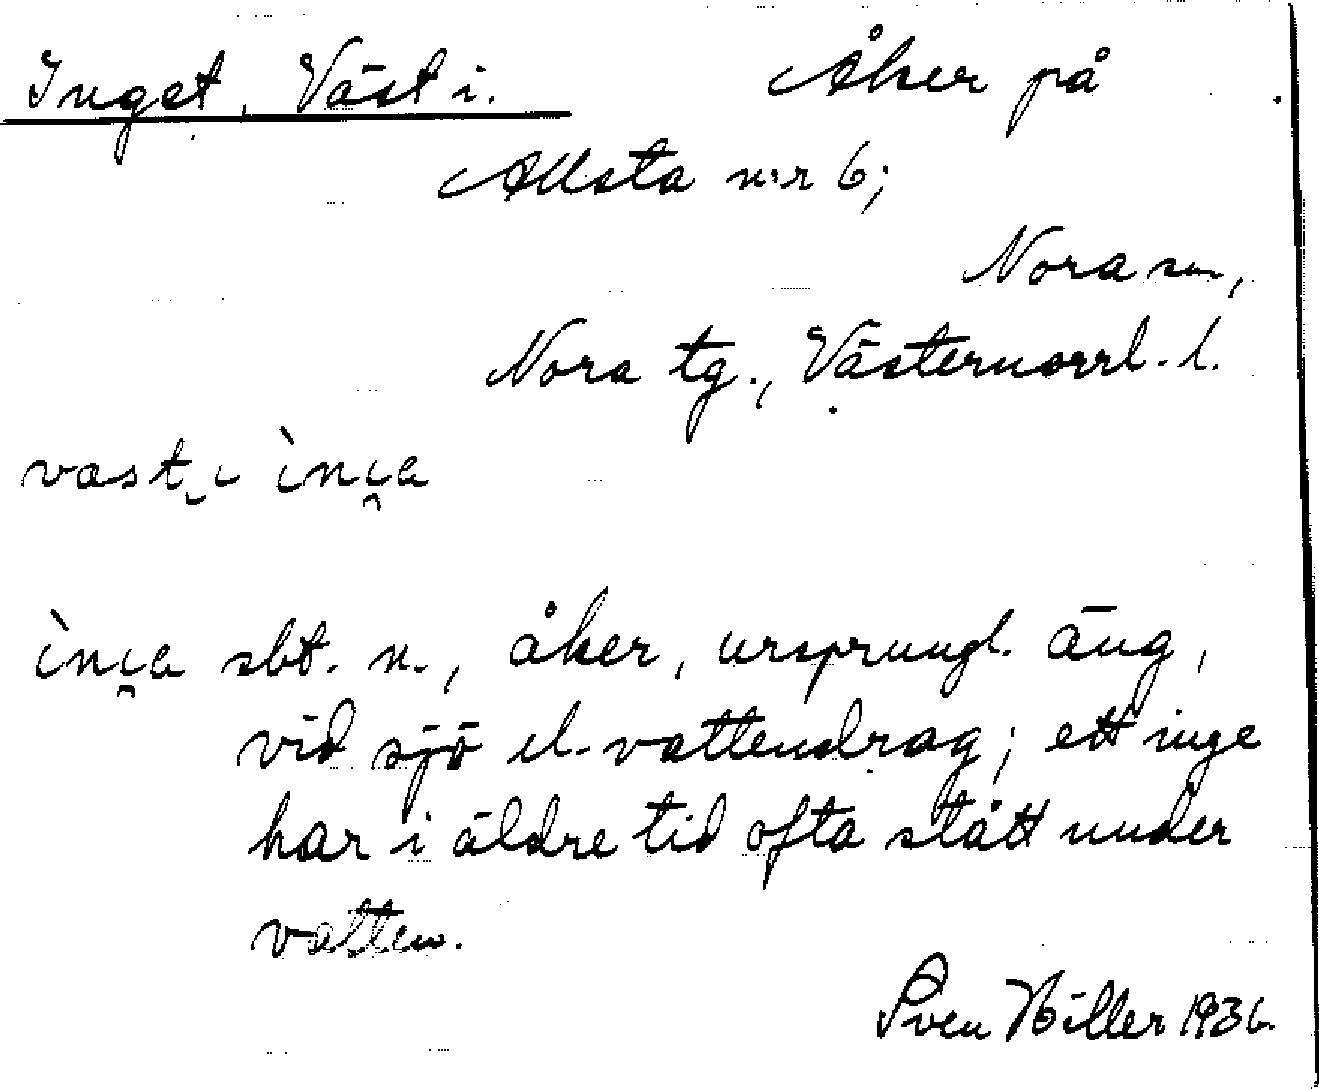 Inget, Väst i. Åker på
Allsta n:r 6;
Nora sn,
Nora tg., Västernorrl. l.
vast i
sbt. n., åker, ursprungl. äng,
vid sjö el. vattendrag; ett inge
har i äldre tid ofta stått under
vatten.
Sven Hiller 1936.